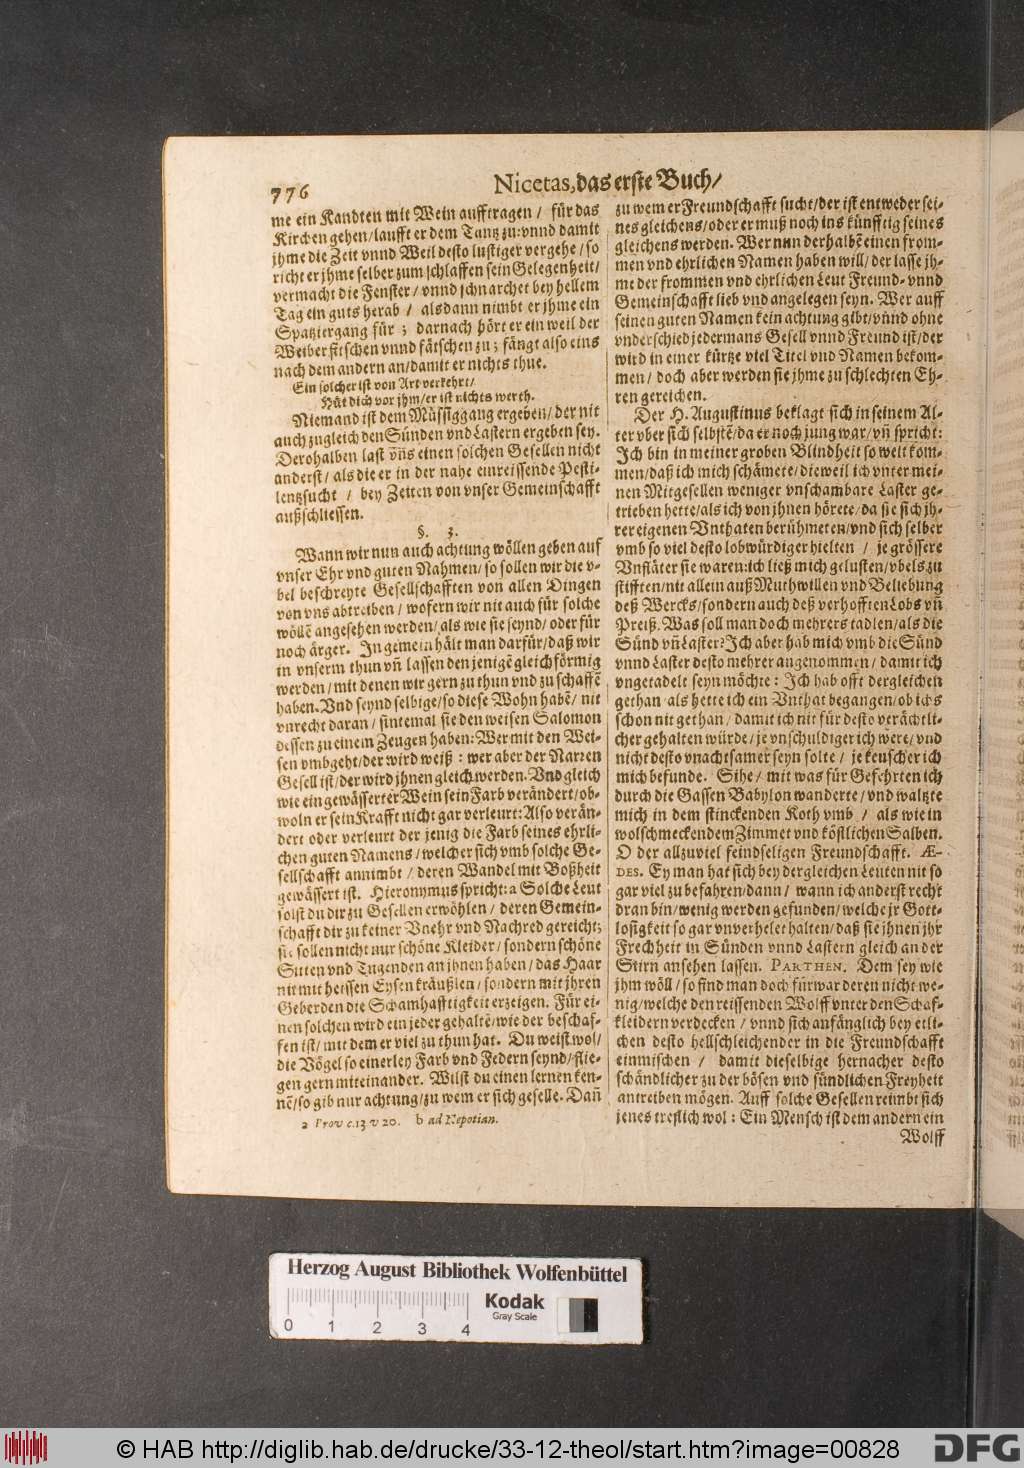 776
Nicetas, das erste Buch/
me ein Kandten mit Wein aufftragen / für das
Kirchen gehen/laufft er dem Tantz zu: vnnd damit
jhme die Zeit vnnd Weil desto lustiger vergehe/so
richt er jhme selber zum schlaffen sein Gelegenheit/
vermacht die Fenster/ vnnd schnarchet bey hellem
Tag ein guts herab / alsdann nimbt er jhme ein
Spatziergang für ; darnach hört er ein weil der
Weiber fitschen vnnd fätschen zu ; fängt also eins
nach dem andern an/damit er nichts thue.
Ein solcher ist von Art verkehrt/
Hüt dich vor jhm/er ist nichts werth.
Niemand ist dem Müssiggang ergeben/der nit
auch zugleich den Sünden vnd Lastern ergeben sey.
Derohalben last vñs einen solchen Gesellen nicht
anderst/als die er in der nahe einreissende Pesti-
lentzsucht / bey Zeiten von vnser Gemeinschafft
außschliessen.
§. 3.
Wann wir nun auch achtung wöllen geben auf
vnser Ehr vnd guten Nahmen/so sollen wir die v-
bel beschreyte Gesellschafften von allen Dingen
von vns abtreiben/wofern wir nit auch für solche
wöllē angesehen werden/als wie sie seynd/oder für
noch ärger. In gemein hält man darfür/daß wir
in vnserm thun vñ lassen den jenigē gleichförmig
werden/mit denen wir gern zu thun vnd zu schaffē
haben. Vnd seynd selbige/so diese Wohn habē/ nit
vnrecht daran/sintemal sie den weisen Salomon
dessen zu einem Zeugen haben: Wer mit den Wei-
sen vmbgeht/der wird weiß : wer aber der Narren
Gesell ist/der wird jhnen gleich werden. Vnd gleich
wie ein gewässerter Wein sein Farb verändert/ob-
woln er sein Krafft nicht gar verleurt: Also verän-
dert oder verleurt der jenig die Farb seines ehrli-
chen guten Namens/welcher sich vmb solche Ge-
sellschafft annimbt / deren Wandel mit Boßheit
gewässert ist. Hieronymus spricht: a Solche Leut
solst du dir zu Gesellen erwöhlen/ deren Gemein-
schafft dir zu keiner Vnehr vnd Nachred gereicht;
sie sollen nicht nur schöne Kleider/sondern schöne
Siten vnd Tugenden an jhnen haben/das Haar
nit mit heissen Eysen kräußlen/sondern mit jhren
Geberden die Schamhafftigkeit erzeigen. Für ei-
nen solchen wird ein jeder gehaltē/wie der beschaf-
fen ist/ mit dem er viel zu thun hat. Du weist wol/
die Vögel so einerley Farb vnd Federn seynd/flie-
gen gern miteinander. Wilst du einen lernen ken-
nē/so gib nur achtung/zu wem er sich geselle. Dañ
a Prov c.13 v 20. b ad Nepotian.
zu wem er Freundschafft sucht/der ist entweder sei-
nes gleichens/oder er muß noch ins künfftig seines
gleichens werden. Wer nun derhalbē einen from-
men vnd ehrlichen Namen haben will/der lasse jh-
me der frommen vnd ehrlichen Leut Freund- vnnd
Gemeinschafft lieb vnd angelegen seyn. Wer auff
seinen guten Namen kein achtung gibt/vnnd ohne
vnderschied jedermans Gesell vnnd Freund ist/der
wird in einer kürtze viel Titel vnd Namen bekom-
men/ doch aber werden sie jhme zu schlechten Eh-
ren gereichen.
Der H. Augustinus beklagt sich in seinem Al-
ter vber sich selbstē/da er noch jung war/vñ spricht:
Ich bin in meiner groben Blindheit so weit kom-
men/daß ich mich schämete/dieweil ich vnter mei-
nen Mitgesellen weniger vnschambare Laster ge-
trieben hette/als ich von jhnen hörete/da sie sich jh-
rer eigenen Vnthaten berühmeten/vnd sich selber
vmb so viel desto lobwürdiger hielten / je grössere
Vnfläter sie waren: ich ließ mich gelusten/vbels zu
stifften/nit allein auß Muthwillen vnd Beliebung
deß Wercks/sondern auch deß verhofften Lobs vñ
Preiß. Was soll man doch mehrers tadlen/als die
Sünd vñ Laster? Ich aber hab mich vmb die Sünd
vnnd Laster desto mehrer angenommen/damit ich
vngetadelt seyn möchte : Ich hab offt dergleichen
gethan / als hette ich ein Vnthat begangen/ob ichs
schon nit gethan/ damit ich nit für desto verächtli-
cher gehalten würde/je vnschuldiger ich were/vnd
nicht desto vnachtsamer seyn solte / je keuscher ich
mich befunde. Sihe/ mit was für Gefehrten ich
durch die Gassen Babylon wanderte/vnd waltzte
mich in dem stinckenden Koth vmb / als wie in
wolschmeckendem Zimmet vnd köstlichen Salben.
O der allzuviel feindseligen Freundschafft. ÆE-
DES. Ey man hat sich bey dergleichen Leuten nit so
gar viel zu befahren/dann/ wann ich anderst recht
dran bin/wenig werden gefunden/welche jr Gott-
losigkeit so gar vnverhelet halten/daß sie jhnen jhr
Frechheit in Sünden vnnd Lastern gleich an der
Stirn ansehen lassen. PARTHEN. Dem sey wie
jhm wöll/so find man doch fürwar deren nicht we-
nig/welche den reissenden Wolff vnter den Schaf-
kleidern verdecken/ vnnd sich anfänglich bey etli-
chen desto hellschleichender in die Freundschafft
einmischen / damit dieselbige hernacher desto
schändlicher zu der bösen vnd sündlichen Freyheit
antreiben mögen. Auff solche Gesellen reimbt sich
jenes treflich wol : Ein Mensch ist dem andern ein
Wolff
Herzog August Bibliothek Wolfenbüttel
Kodak
Gray Scale
0 1 2 3 4
© HAB http://diglib.hab.de/drucke/33-12-theol/start.htm?image=00828
DFG